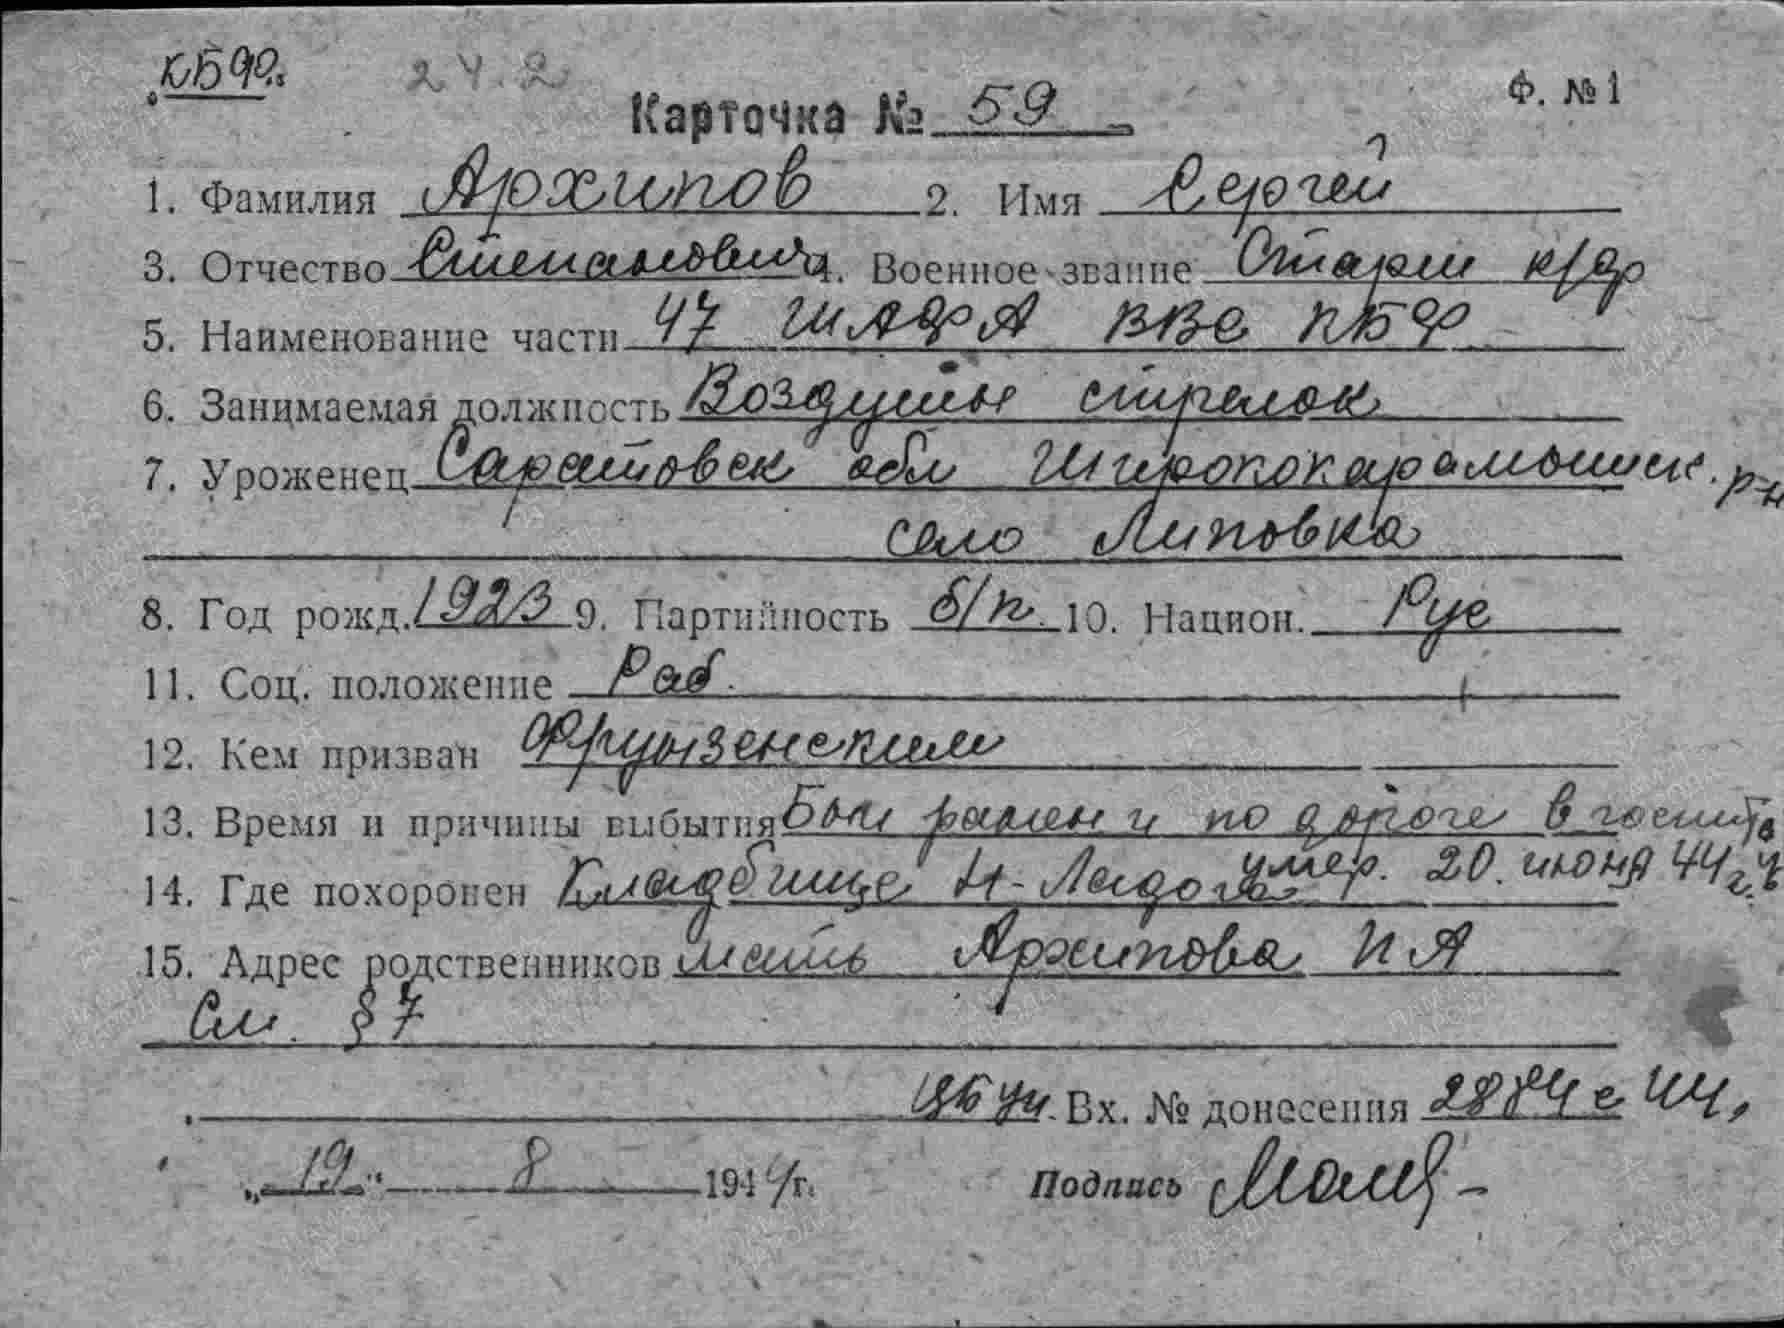 КБФ 24.2
Ф. №1
Карточка № 59
1. Фамилия Архипов 2. Имя Сергей
3. Отчество Степанович 4. Военное звание Старш к/ф
5. Наименование части 47 ШАДРА ВВС КБФ
6. Занимаемая должность Воздушн стрелок
7. Уроженец Саратовск обл Ширококарамышск. р-н
село Липовка
8. Год рожд. 1923 9. Партийность б/п. 10. Национ. Рус
11. Соц. положение Раб.
12. Кем призван Фрунзенским
13. Время и причины выбытия Был ранен и по дороге в госпит
умер. 20. июня 44 г.
14. Где похоронен Кладбище Н-Ладога
15. Адрес родственников мать Архипова П А
См. § 7
Вх. № донесения 2884 с 44
„19" 8 1944 г. Подпись